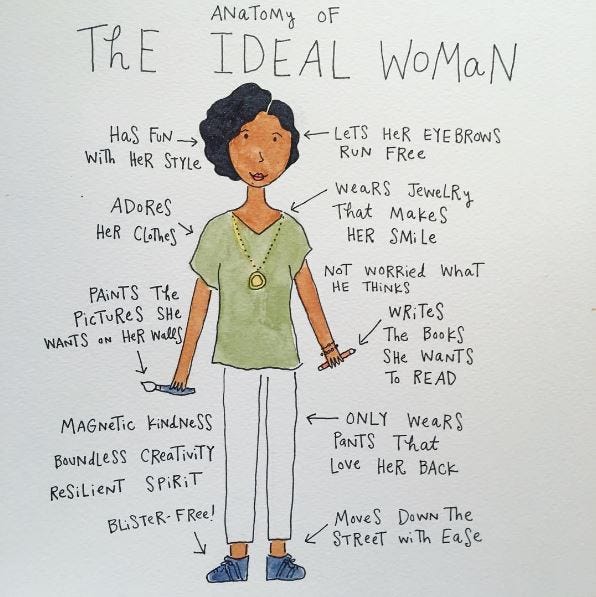 ANaToMy OF
ThE IDEAL WoMaN
HaS FuN
WiTh HeR STyLE
LeTS HeR EYEBROWS
RuN FRee
WeaRS JEWeLRy
ThaT MaKeS
HER SMiLe
ADoReS
HeR CLoTheS
NoT WoRRieD WhaT
HE THiNKS
PAiNTS The
PiCTuReS SHe
WANTS oN HeR WaLLS
WRiTeS
The BooKS
SHe WaNTS
To READ
MAGNeTiC KiNDNeSS
BouNDLeSS CReaTiViTY
ReSiLieNT SPiRiT
ONLY WeaRS
PaNTS ThaT
LoVe HeR BACK
BLiSTeR-FRee!
MoVeS DowN The
STReeT WiTh EaSe